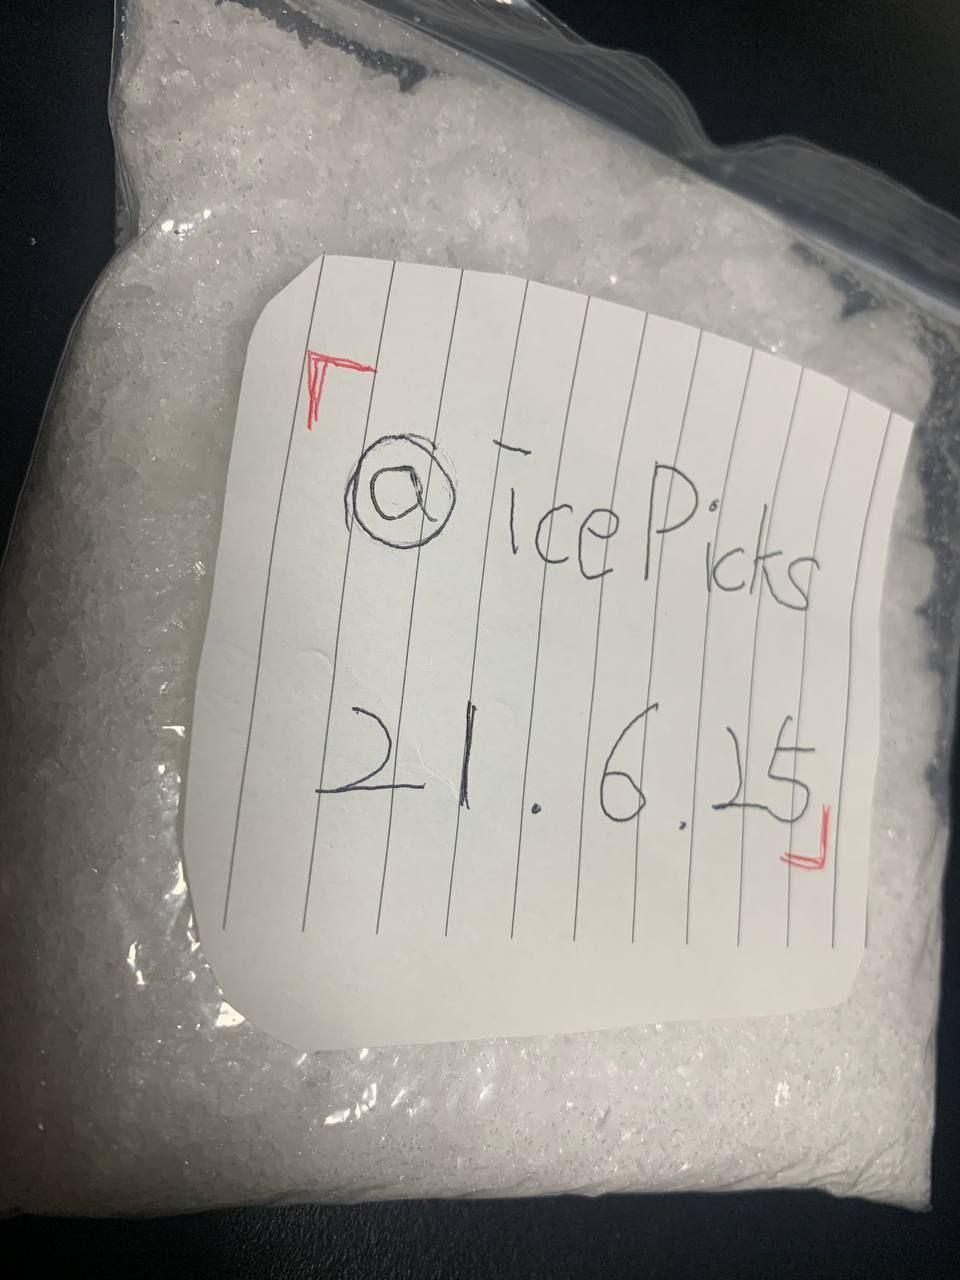 @icePicks
21.6.25